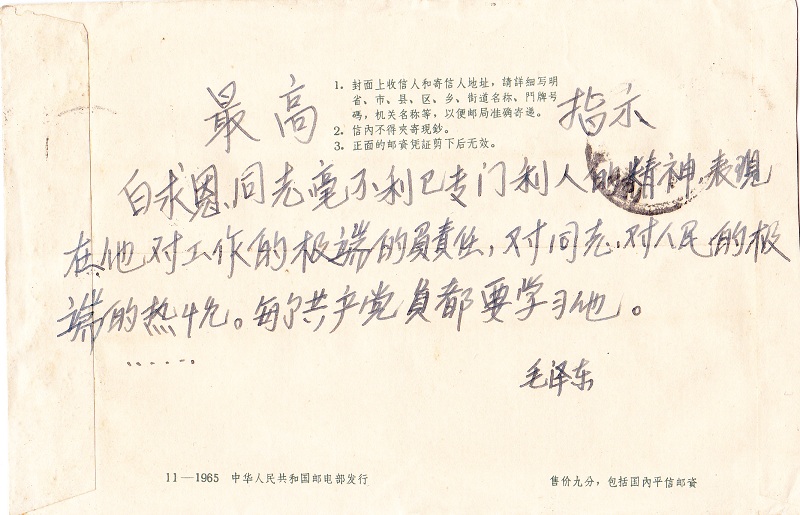 1. 封面上收信人和寄信人地址，請詳細写明
省、市、县、区、乡、街道名称、門牌号
碼，机关名称等，以便邮局准确寄递。
2. 信內不得夾寄現鈔。
3. 正面的邮資凭証剪下后无效。
最高 指示
白求恩同志毫不利已专门利人的精神，表現
在他对工作的极端的負責任，对同志，对人民的极
端的热忱。每个共产党員都要学习他。
……。
毛泽东
11—1965 中华人民共和国邮电部发行
售价九分，包括国內平信邮資